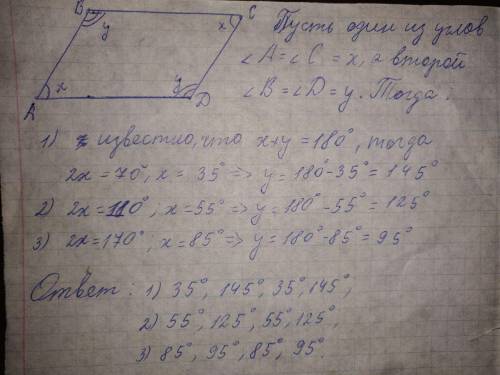 B
C
y
x
Пусть один из углов
∠A=∠C=x, а второй
∠B=∠D=y. Тогда:
x
y
A
D
1) известно, что x+y=180°, тогда
2x=70°, x=35° => y=180°-35°=145°
2) 2x=110°; x=55° => y=180°-55°=125°
3) 2x=170°, x=85° => y=180°-85°=95°
Ответ: 1) 35°, 145°, 35°, 145°,
2) 55°, 125°, 55°, 125°,
3) 85°, 95°, 85°, 95°.